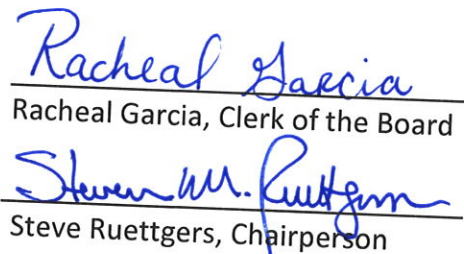 Racheal Garcia
Racheal Garcia, Clerk of the Board
Steven M. Ruettgers
Steve Ruettgers, Chairperson